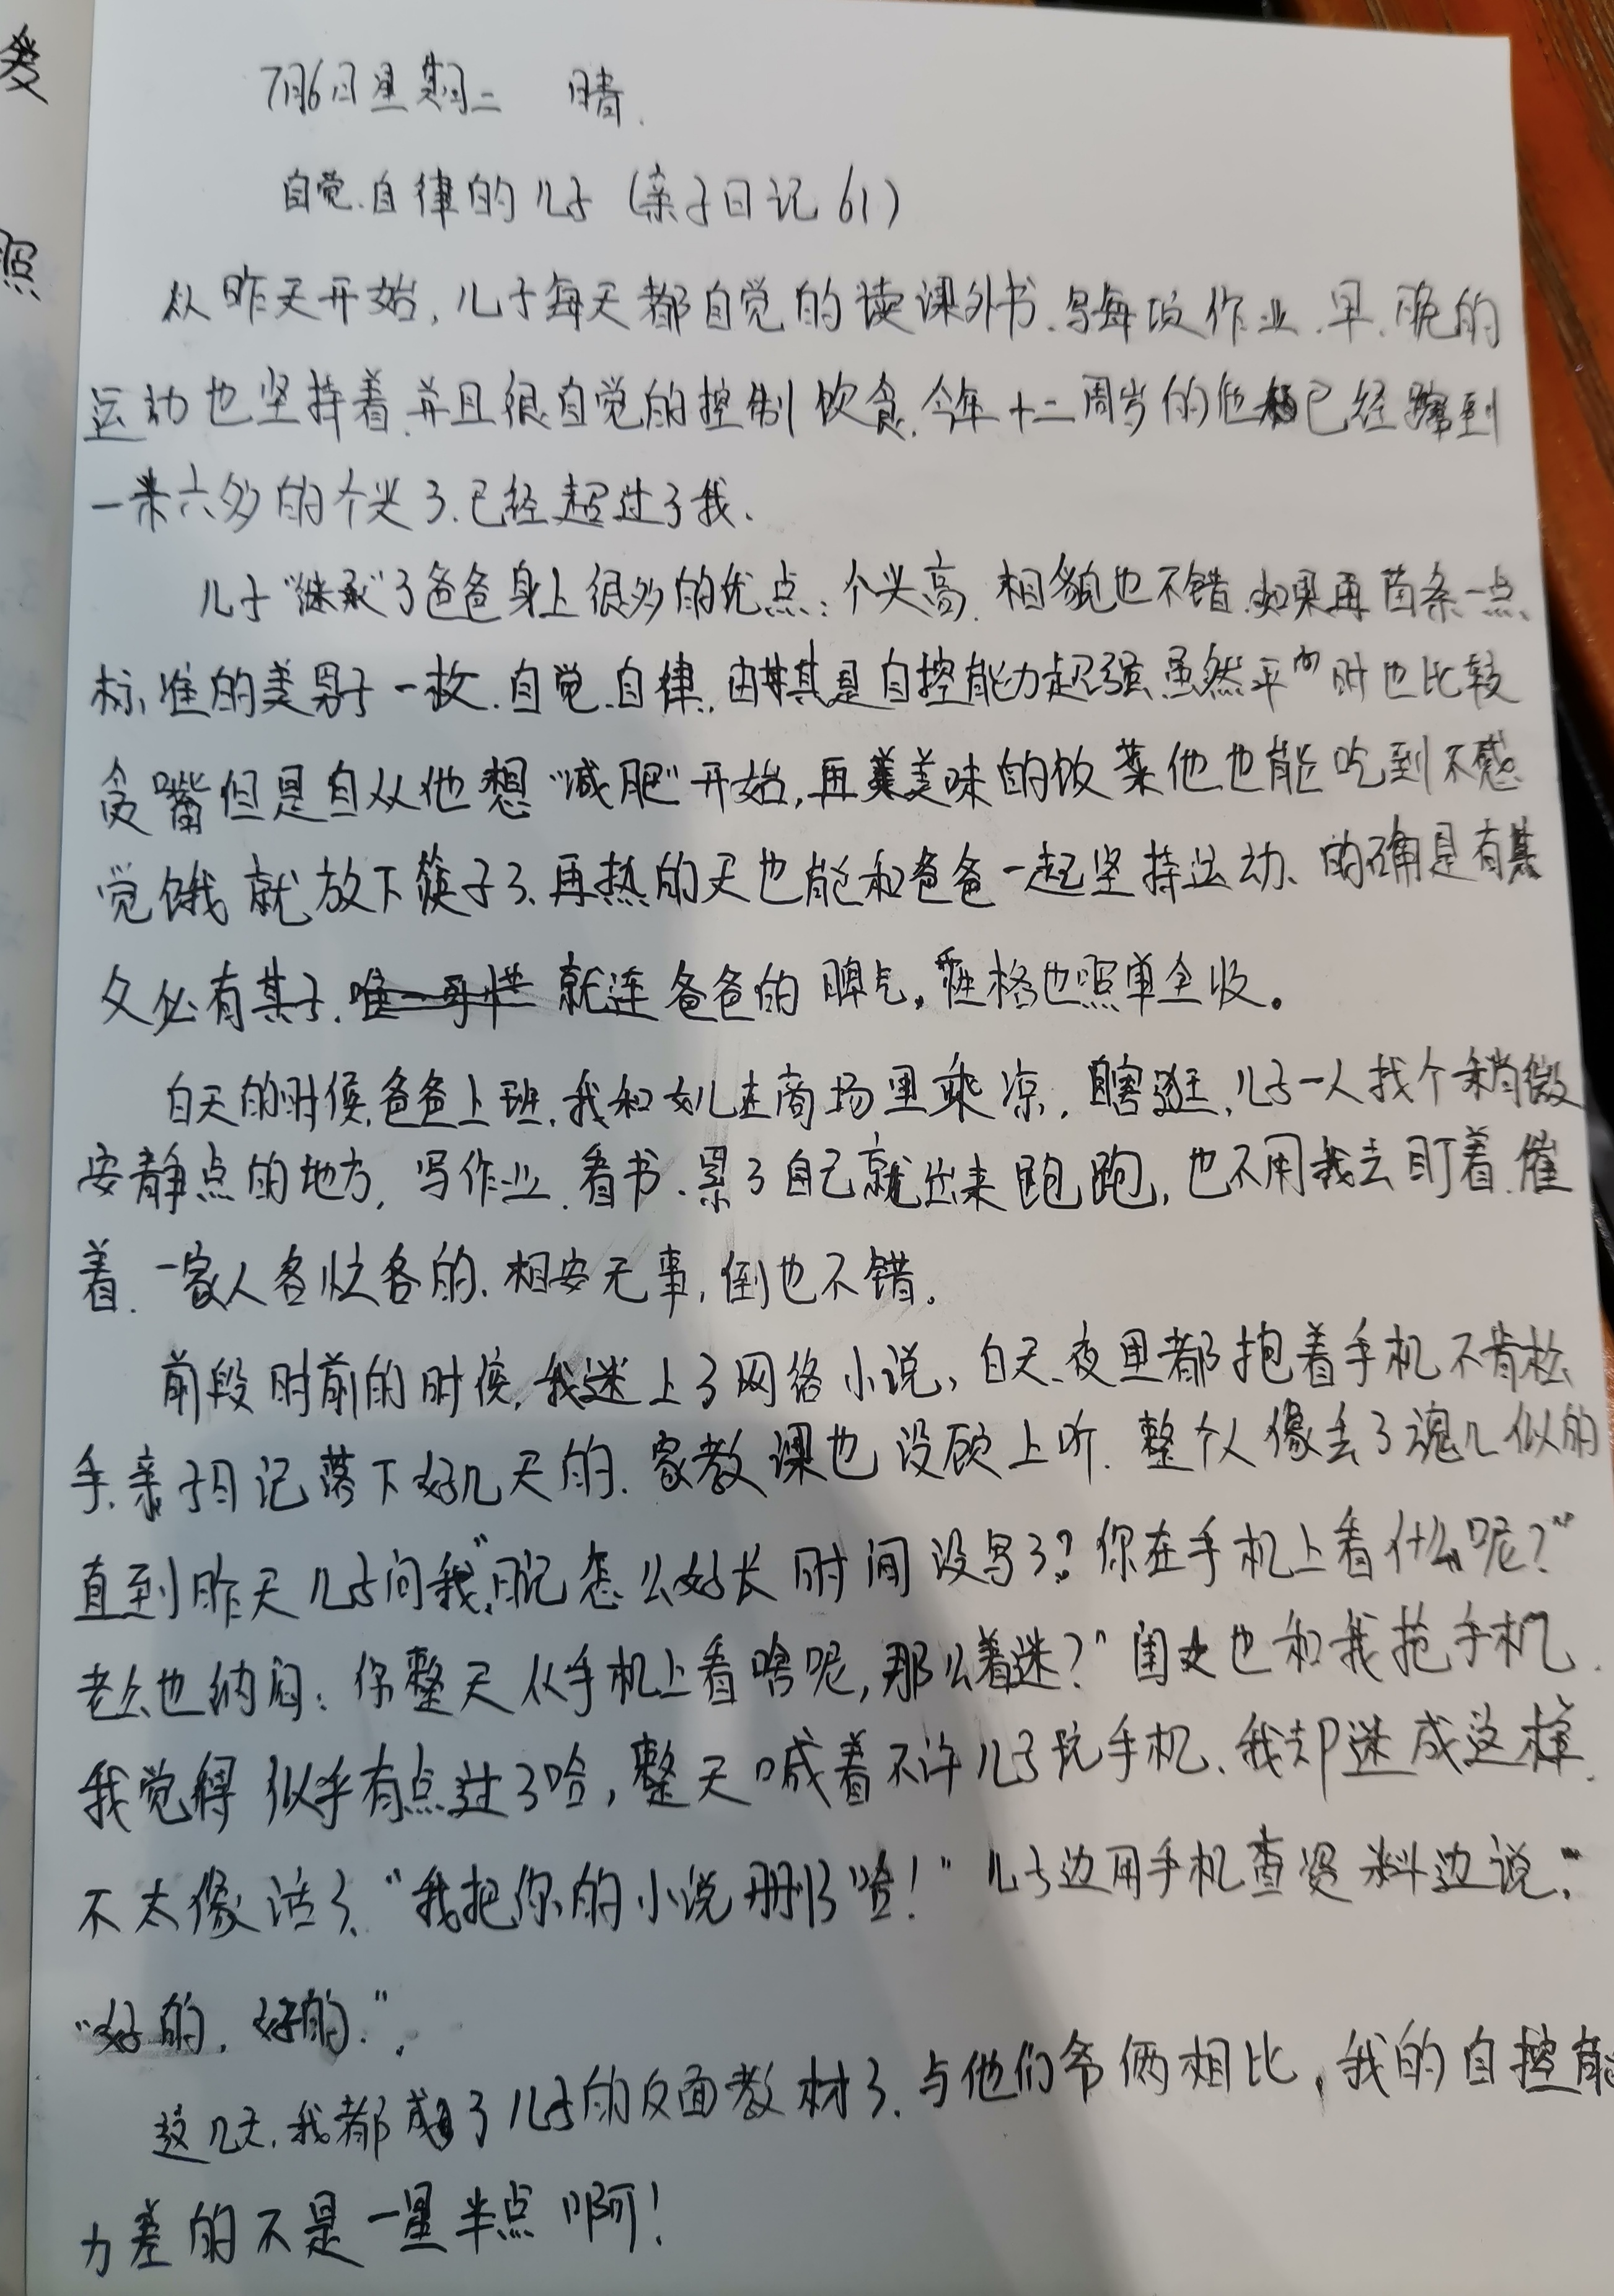 爱
照
7月6日星期二 晴.
自觉.自律的儿子(亲子日记61)
从昨天开始,儿子每天都自觉的读课外书.写每项作业.早.晚的
运动也坚持着.并且很自觉的控制饮食.今年十二周岁的他已经蹿到
一米六多的个头了.已经超过了我.
儿子“继承”了爸爸身上很多的优点:个头高.相貌也不错.如果再苗条一点.
标准的美男子一枚.自觉.自律.由其是自控能力超强.虽然平时也比较
贪嘴但是自从他想“减肥”开始,再美味的饭菜他也能吃到不感
觉饿就放下筷子了.再热的天也能和爸爸一起坚持运动、的确是有其
父必有其子.就连爸爸的脾气,性格也照单全收。
白天的时候,爸爸上班,我和女儿在商场里乘凉,瞎逛,儿子一人找个稍微
安静点的地方,写作业.看书.累了自己就出来跑跑,也不用我去盯着.催
着.一家人各忙各的.相安无事,倒也不错。
前段时前的时候,我迷上了网络小说,白天、夜里都抱着手机不肯松
手.亲子日记落下好几天的.家教课也没顾上听.整个人像丢了魂儿似的
直到昨天儿子问我,“日记怎么好长时间没写了?你在手机上看什么呢?”
老公也纳闷:你整天从手机上看啥呢,那么着迷?”闺女也和我抢手机.
我觉得似乎有点过了哈,整天喊着不许儿子玩手机、我却迷成这样.
不太像话了.“我把你的小说删了哈!”儿子边用手机查资料边说:
“好的,好的.”.
这几天,我都成了儿子的反面教材了.与他们爷俩相比,我的自控能
力差的不是一星半点啊!